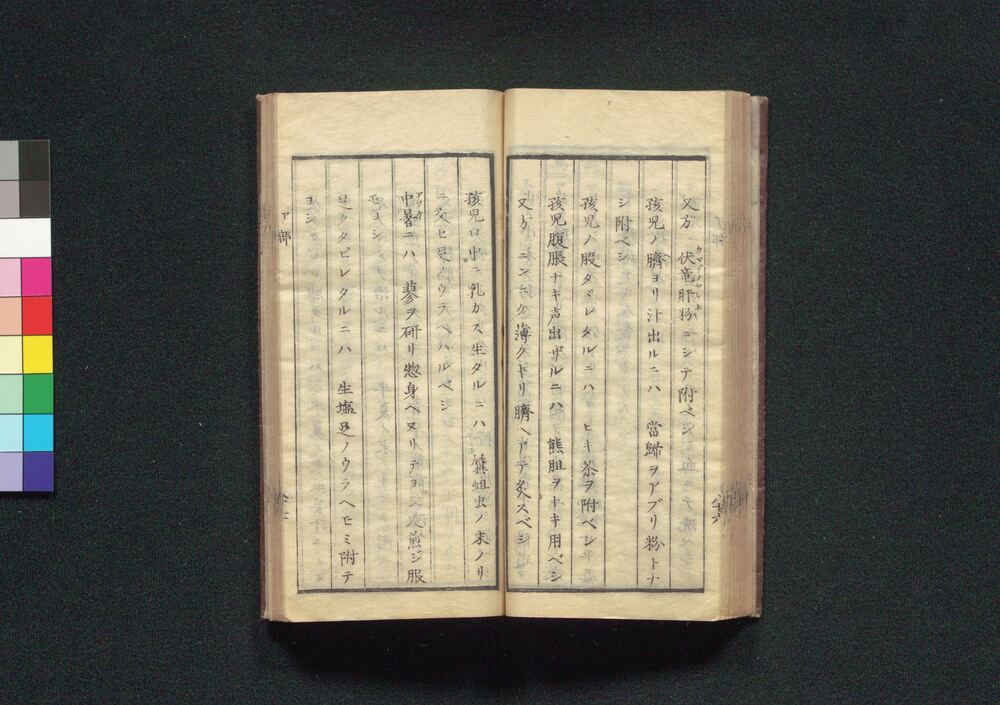 又方 伏竜肝粉ニシテ附ベシ
孩児ノ臍ヨリ汁出ルニハ 當歸ヲアブリ粉トナ
シ附ベシ
孩児ノ股タヾレタルニハ ヒキ茶ヲ附ベシ
孩児腹脹ナキ声出ザルニハ 熊胆ヲトキ用ベシ
又方 ニンニク薄クキリ臍ヘアテ灸スベシ
孩児口中ニ乳カス生タルニハ 蜞蛆虫ノ末ノリ
ニ交セ足ノウラヘハルベシ
中暑ニハ 蓼ヲ研リ惣身ヘヌリテヨシ 又煎ジ服
モヨシ
足クタビレタルニハ 生塩足ノウラヘモミ附テ
ヨシ
ア部